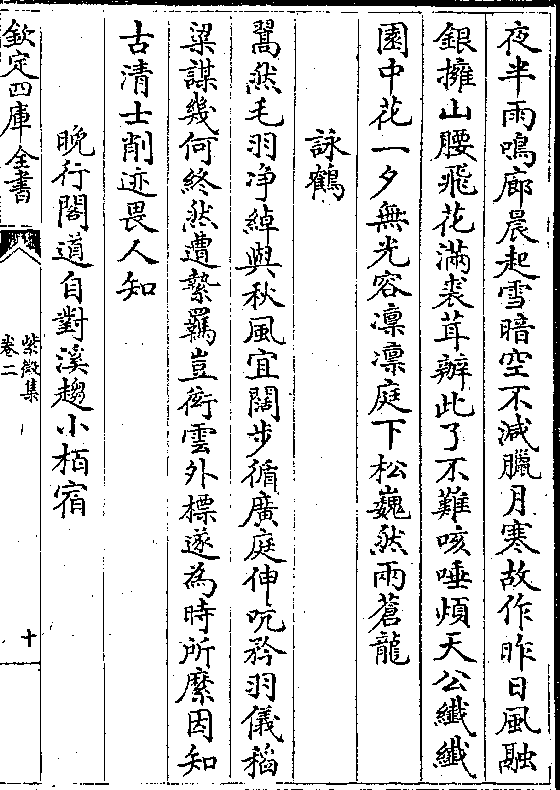 夜半雨鳴廊晨起雪暗空不減臘月寒故作昨日風融
銀擁山腰飛花滿裘茸辦此了不難咳唾煩天公纖纖
園中花一夕無光容凛凛庭下松巍然兩蒼龍
詠鶴
翯然毛羽净綽與秋風宜闊步循廣庭伸吭矜羽儀稻
粱謀幾何終然遭縶羈豈銜雲外標遂為時所縻因知
古清士削迹畏人知
晚行閣道自對溪趨小栢宿
欽定四庫全書
紫微集
卷二
十